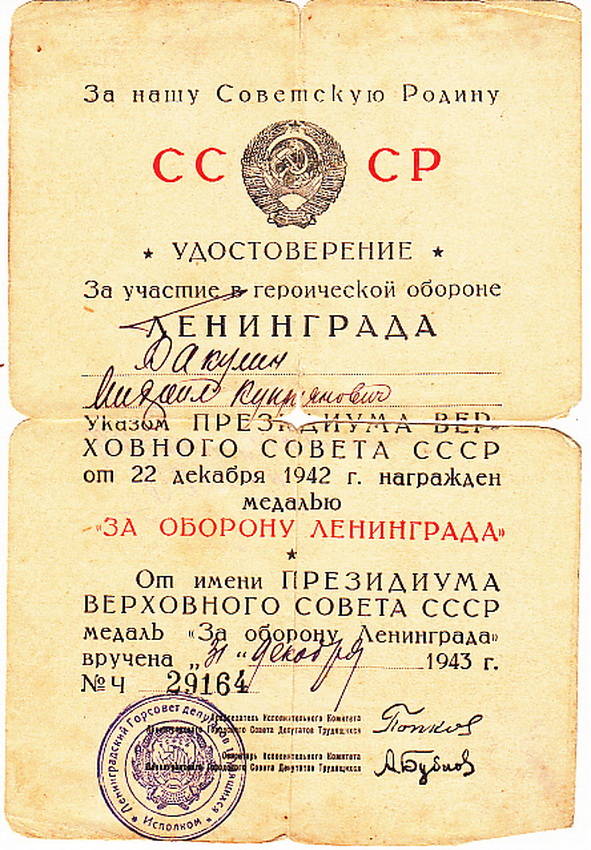 За нашу Советскую Родину
СССР
УДОСТОВЕРЕНИЕ
За участие в героической обороне
ЛЕНИНГРАДА
Вакулин
Михаил Куприянович
Указом ПРЕЗИДИУМА ВЕР-
ХОВНОГО СОВЕТА СССР
от 22 декабря 1942 г. награжден
медалью
«ЗА ОБОРОНУ ЛЕНИНГРАДА»
От имени ПРЕЗИДИУМА
ВЕРХОВНОГО СОВЕТА СССР
медаль «За оборону Ленинграда»
вручена „31" декабря 1943 г.
№ Ч 29164
Председатель Исполнительного Комитета
Ленинградского Городского Совета Депутатов Трудящихся
Попков
Секретарь Исполнительного Комитета
Ленинградского Городского Совета Депутатов Трудящихся
А Бубнов
Ленинградский Горсовет депутатов Трудящихся
Исполком